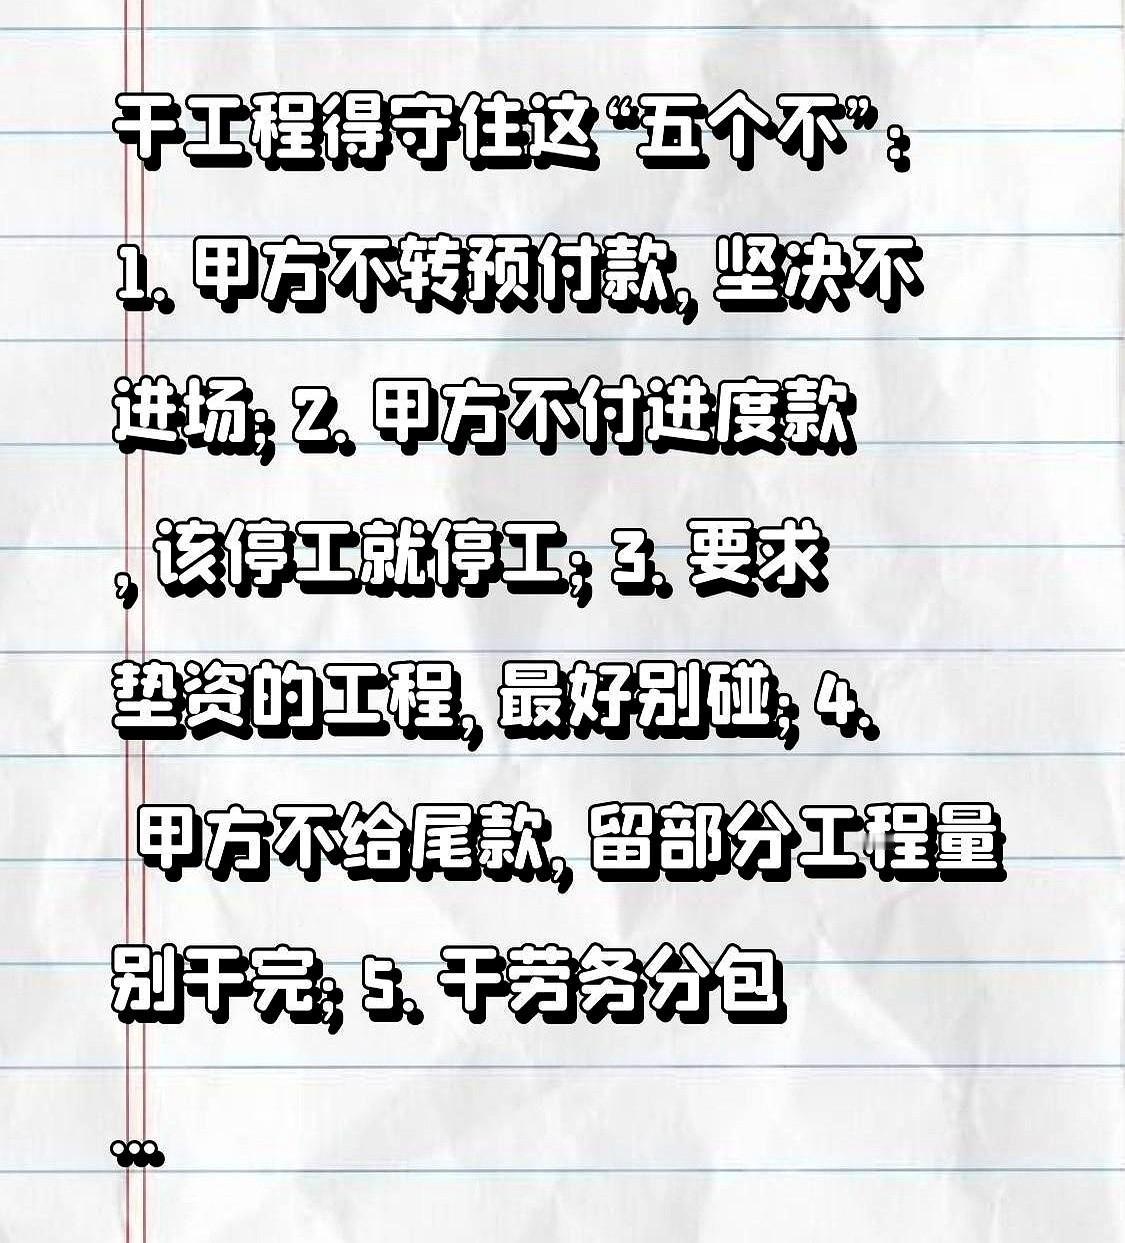 干工程得守住这“五个不”：
1. 甲方不转预付款, 坚决不
进场; 2. 甲方不付进度款
, 该停工就停工; 3. 要求
垫资的工程, 最好别碰; 4.
甲方不给尾款, 留部分工程量
别干完; 5. 干劳务分包
...